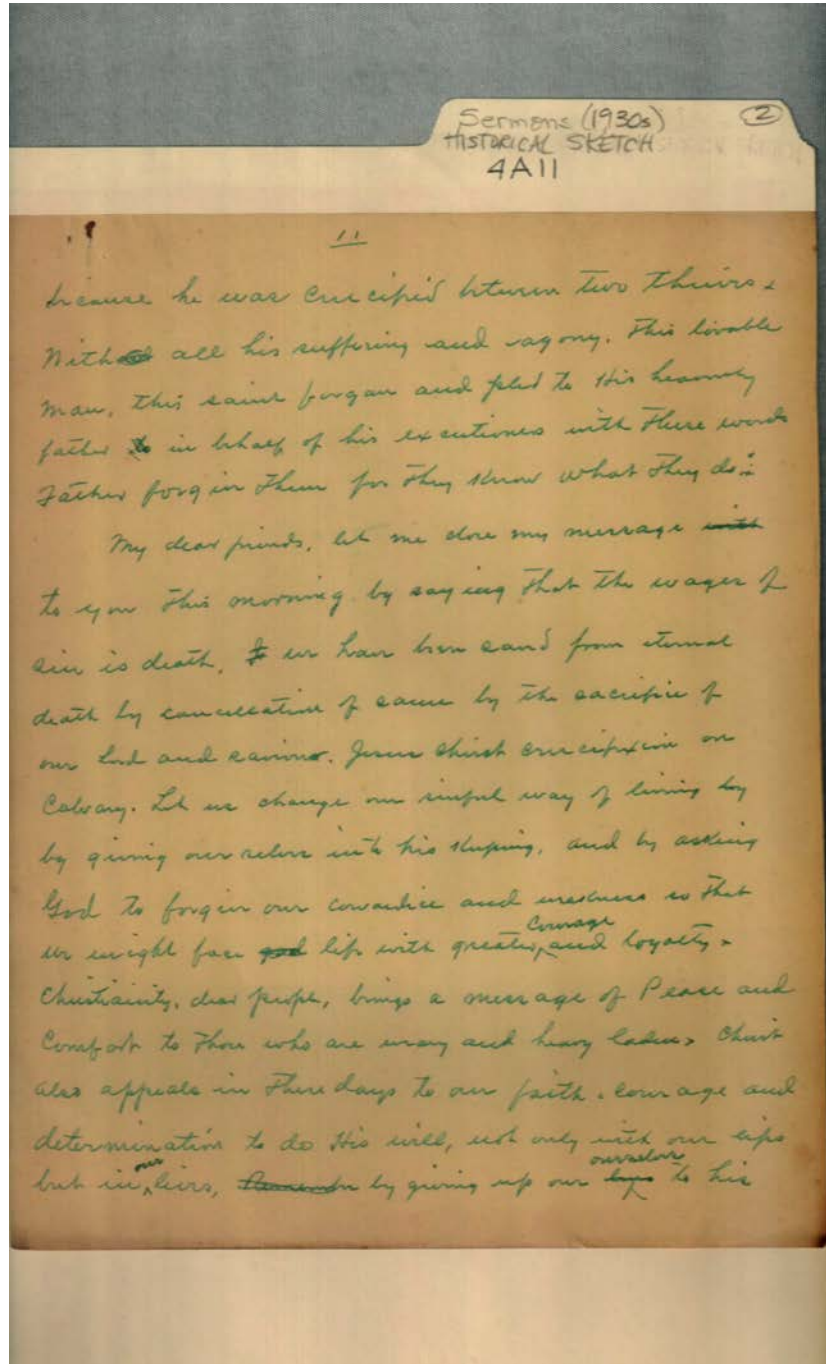 Sermons (1930s) 2
HISTORICAL SKETCH
4A11
11
because he was crucified between two thieves.
With all his suffering and agony. This lovable
man, this saint forgave and pled to His heavenly
father in behalf of his executioners with these words
Father forgive them for they know what they do."
My dear friends, let me close my message with
to you this morning by saying that the wages of
sin is death. If we have been saved from eternal
death by cancellation of same by the sacrifice of
our Lord and saviour. Jesus Christ crucifixion on
Calvary. Let us change our sinful way of living by
by giving ourselves into his keeping, and by asking
God to forgive our cowardice and weakness so that
we might face god life with greater courage and loyalty.
Christianity, dear people, brings a message of Peace and
Comfort to those who are weary and heavy laden. Christ
also appeals in these days to our faith, courage and
determination to do His will, not only with our lips
but in our lives, Remember by giving up our lips ourselves to his